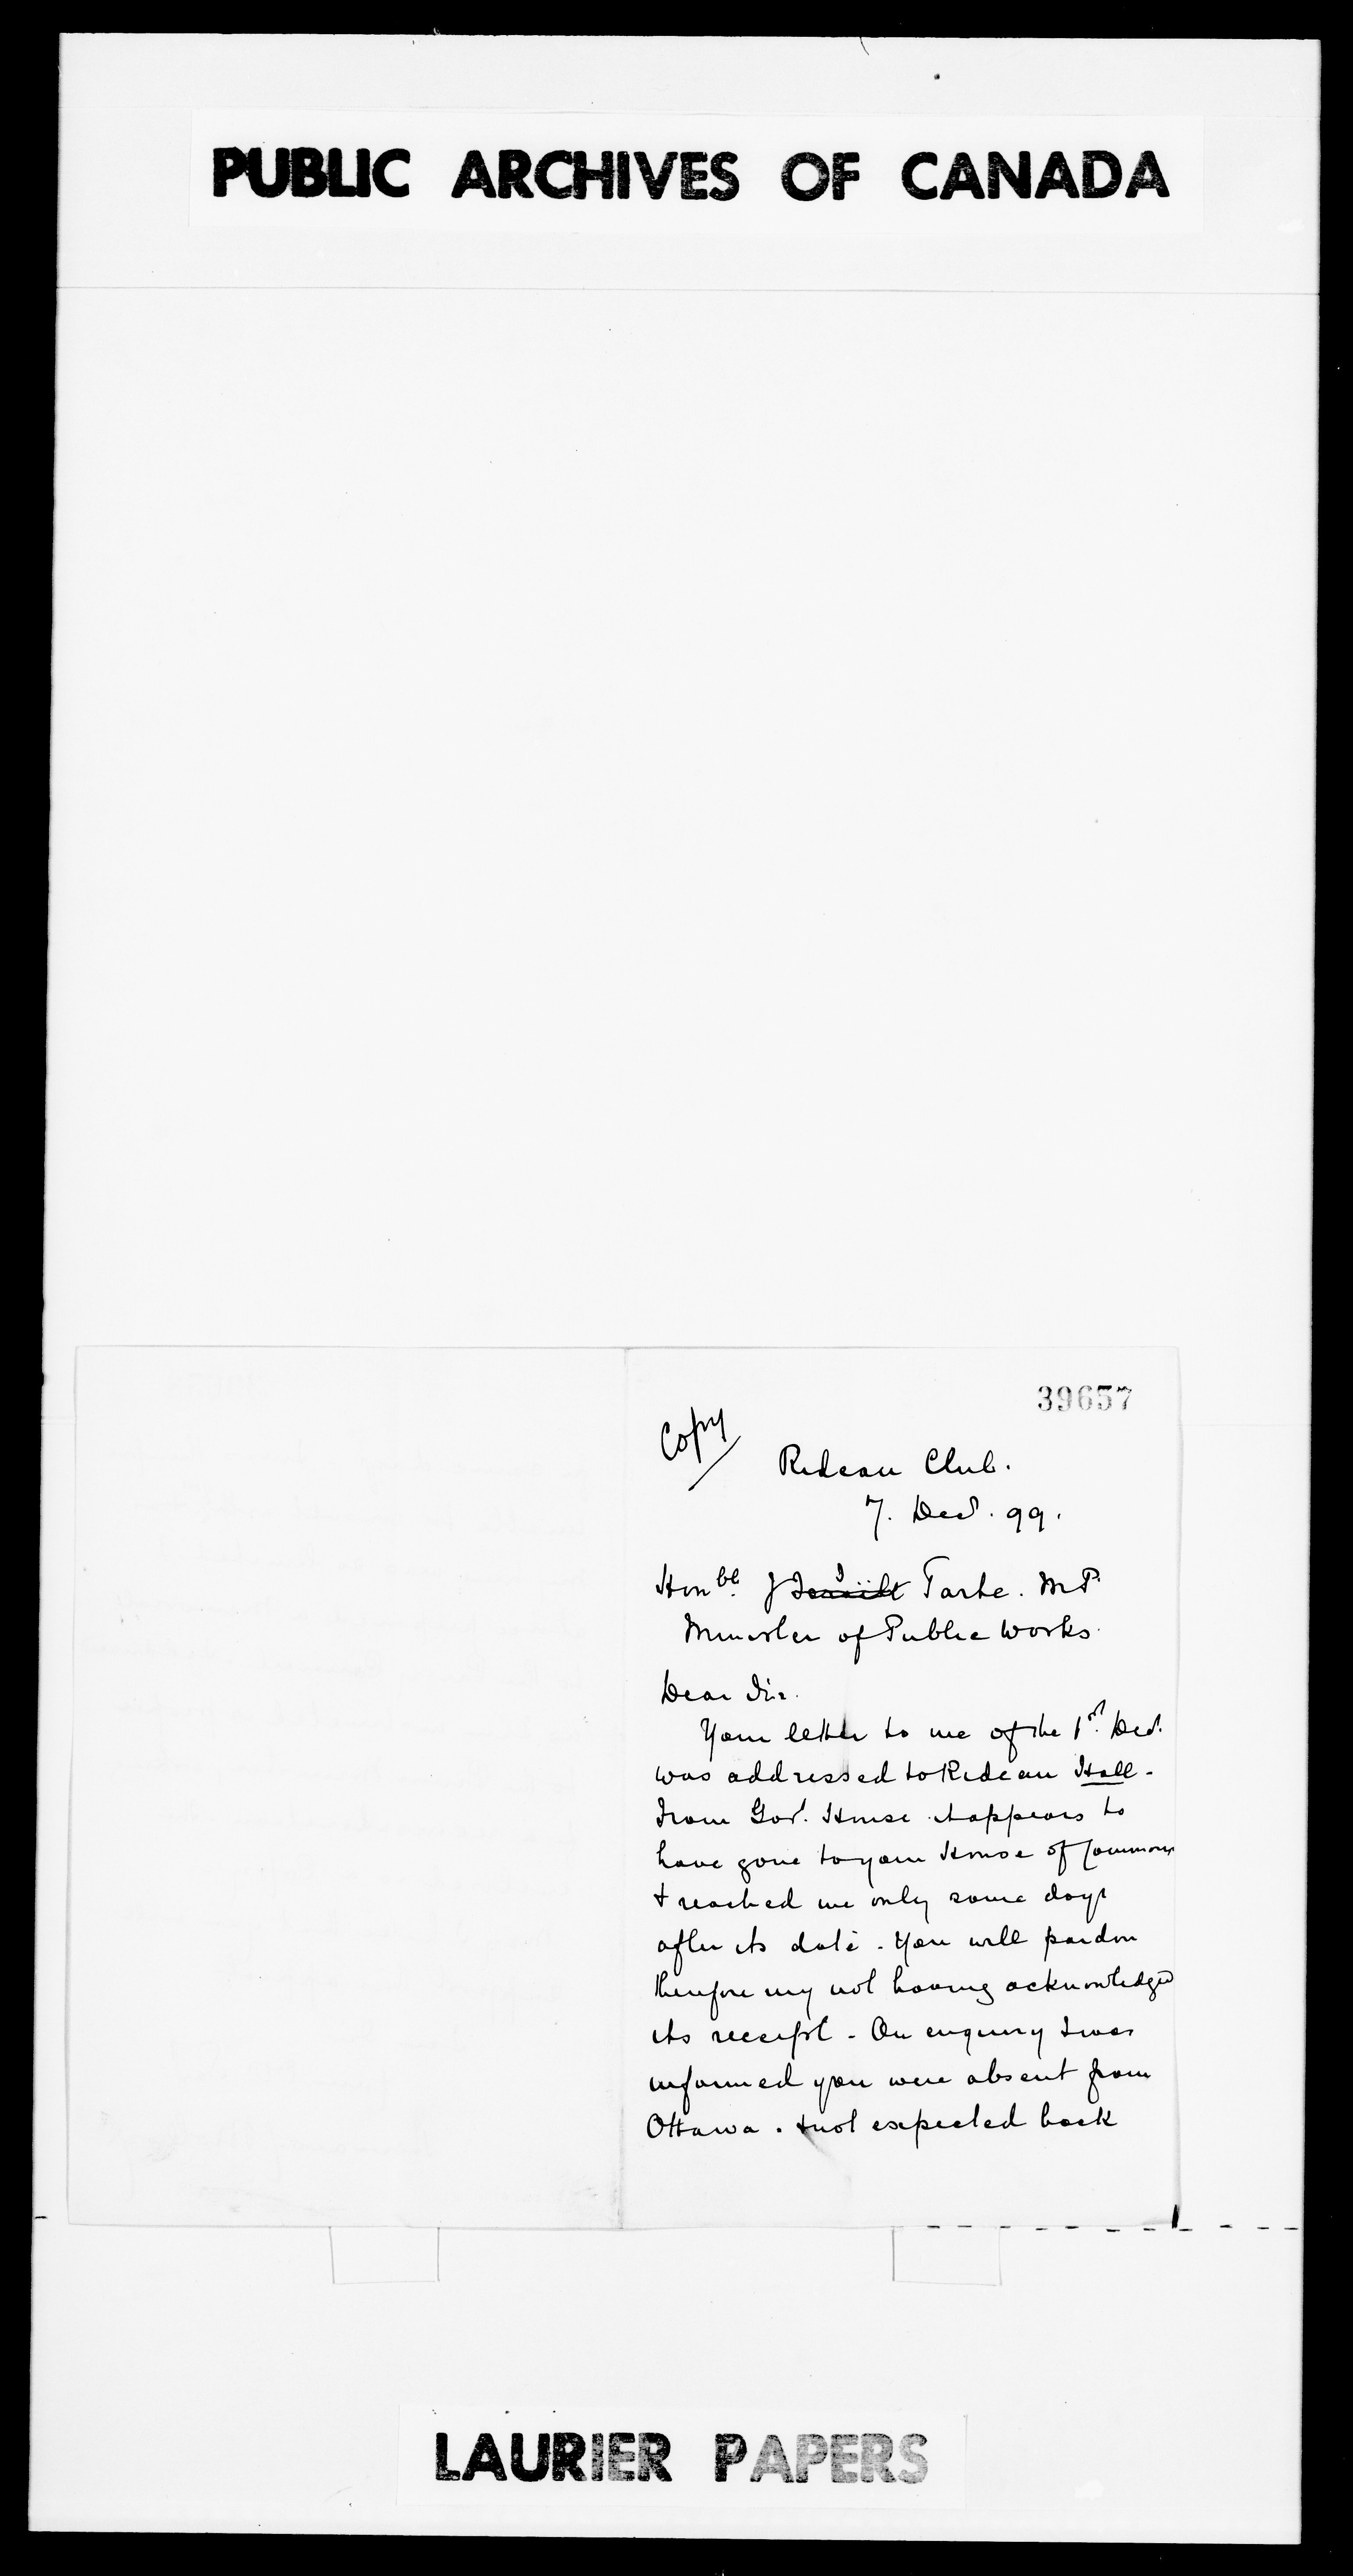 PUBLIC ARCHIVES OF CANADA
39657
Copy
Rideau Club.
7. Decr. 99.
Honble. J I Tarte. M P.
Minister of Public Works.
Dear Sir.
Your letter to me of the 1st. Decr.
was addressed to Rideau Hall -
From Govt. House it appears to
have gone to your House of Commons
& reached me only some days
after its date. You will pardon
therefore my not having acknowledged
its receipt - On enquiry I was
informed you were absent from
Ottawa. & not expected back
LAURIER PAPERS